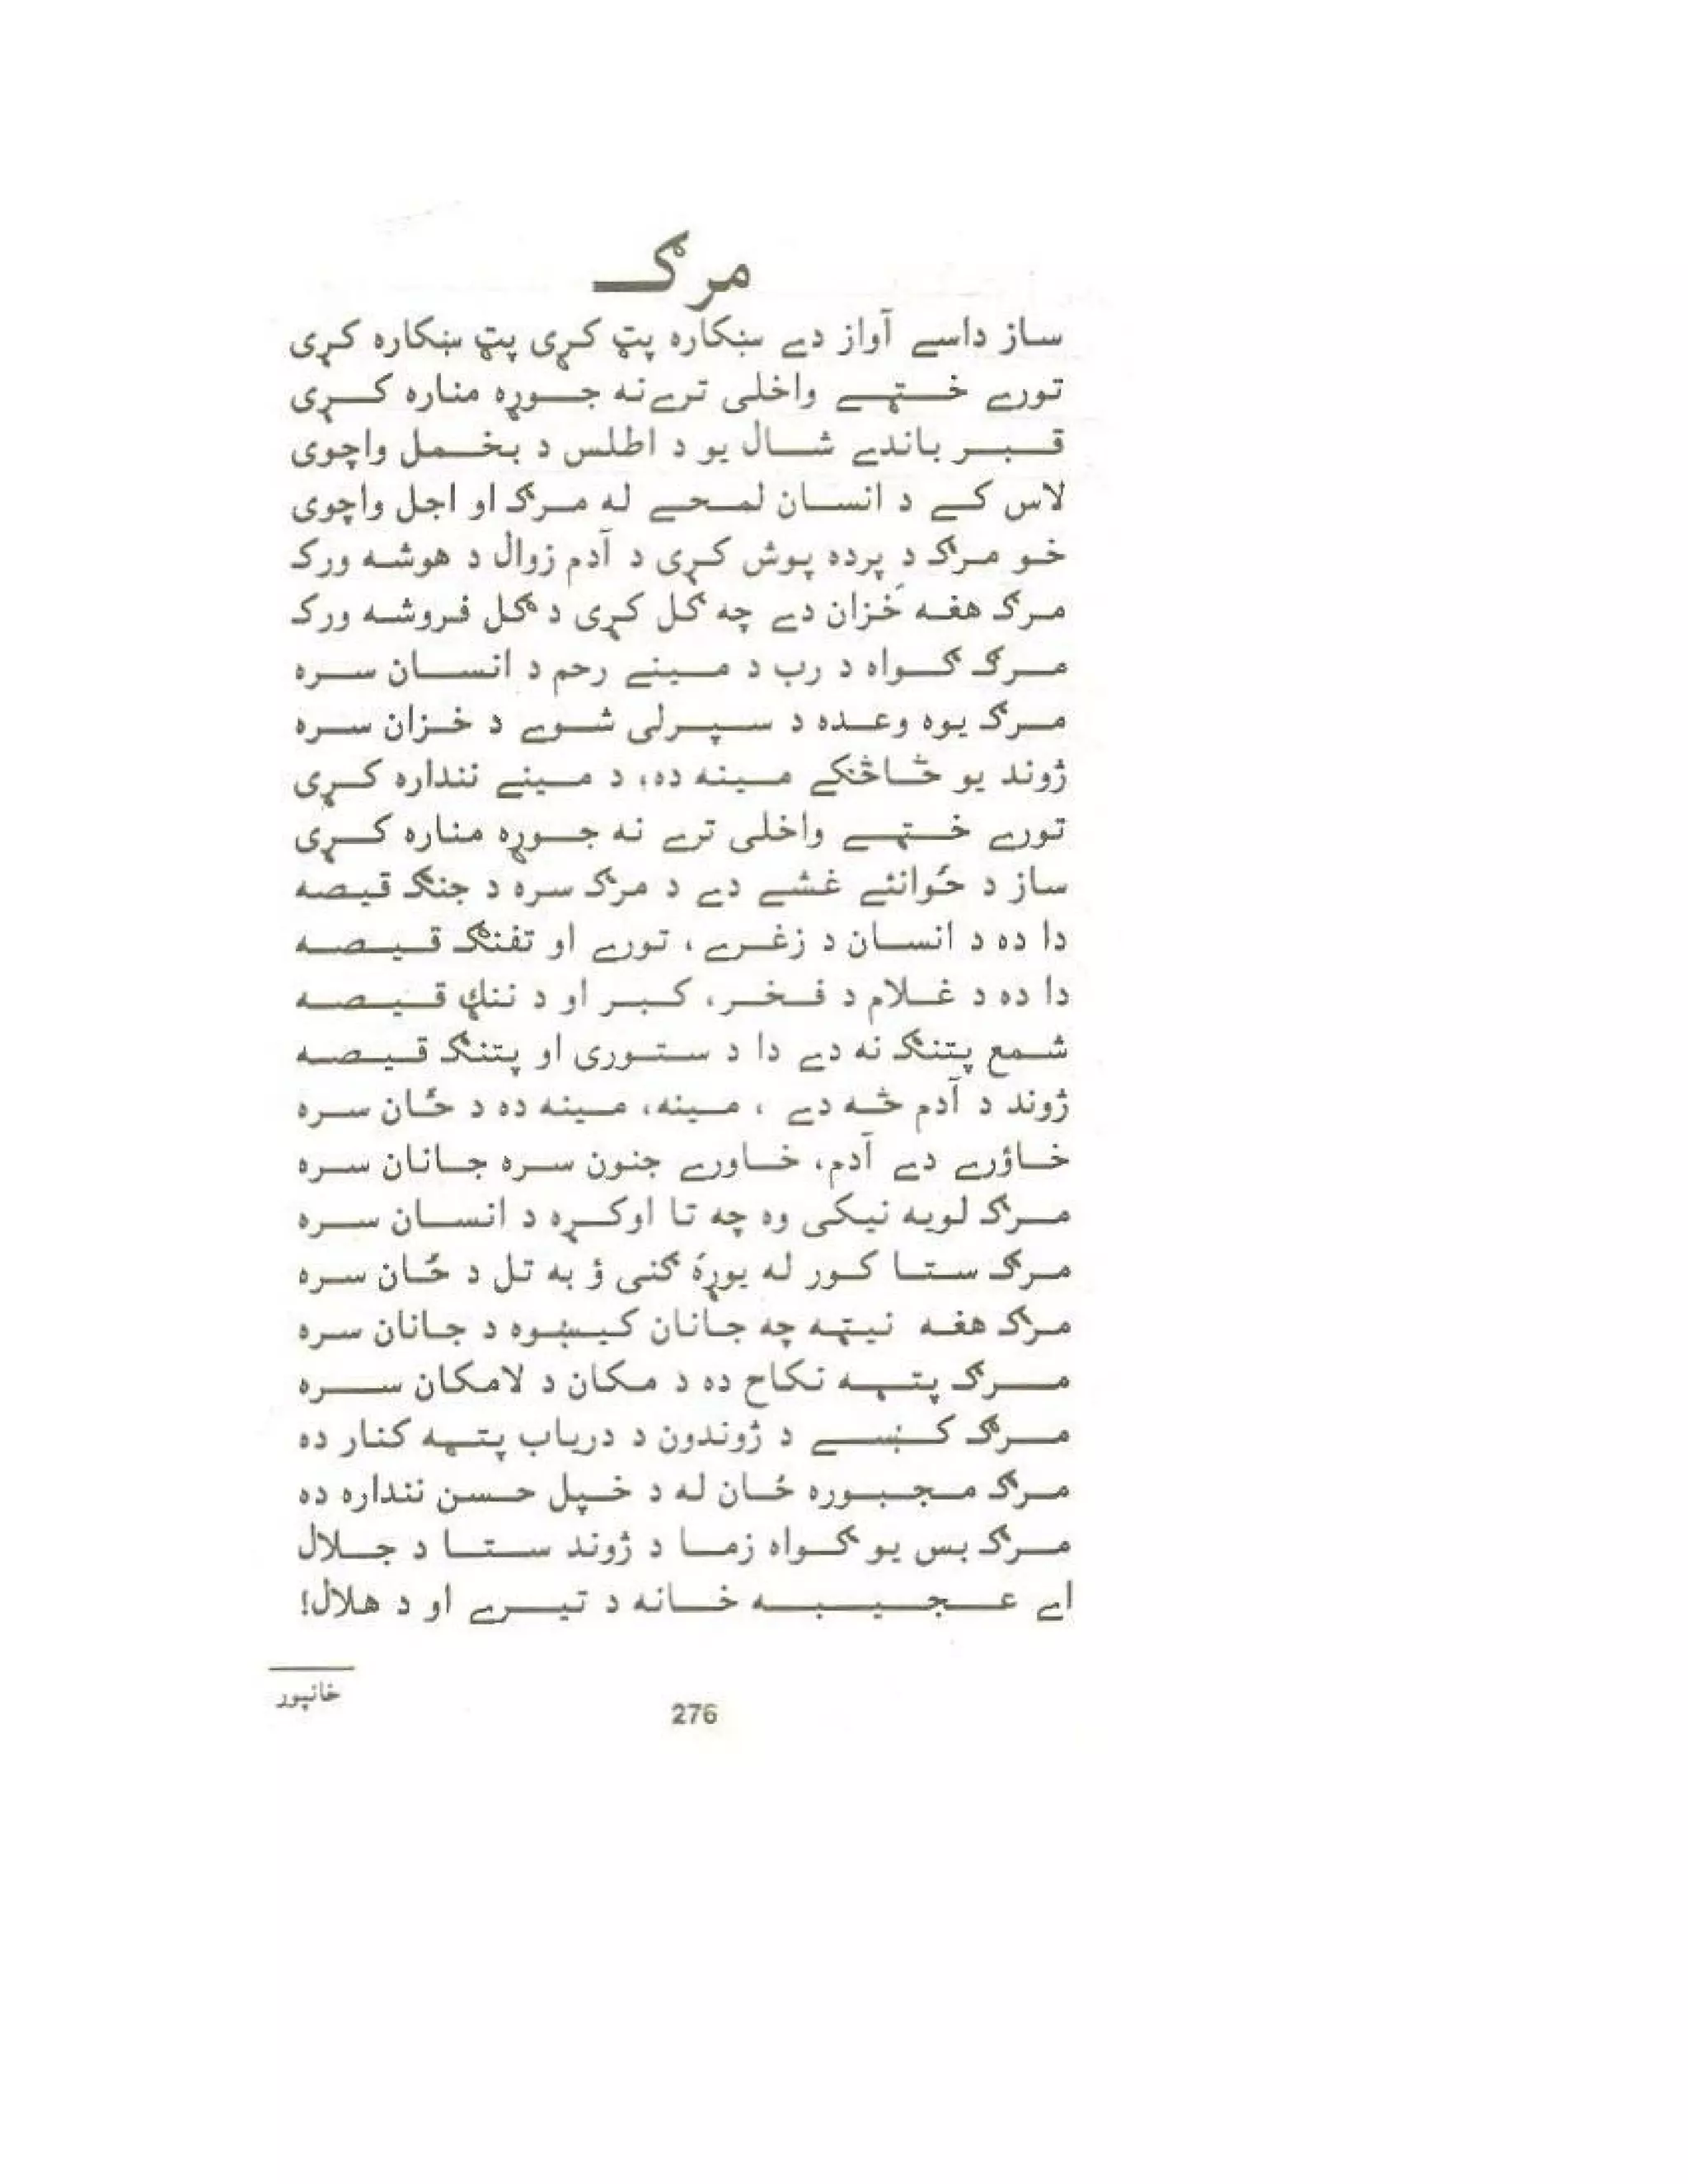 مرګ
ساز داسے آواز دے ښکاره پټ کړی پټ ښکاره کړی
تورے خټے واخلی ترے نه جوړه مناره کړی
قبر باندے شال یو د اطلس د بخمل واچوی
لاس کے د انسان لمحے له مرګ او اجل واچوی
خو مرګ دِ پرده پوش کړی د آدم زوال د هوشه ورک
مرګ هغه خزان دے چه ګل کړی د ګل فروشه ورک
مرګ ګواه د رب د مینے رحم د انسان سره
مرګ یوه وعده د سپرلی شوے د خزان سره
ژوند یو څاڅکے مینه ده، د مینے نندارہ کړی
تورے خټے واخلی ترے نه جوړه مناره کړی
ساز د ځوانئے غشے دے د مرګ سره د جنګ قیصه
دا ده د انسان د زغرے، تورے او تفنګ قیصه
دا ده د غلام د فخر، کبر او د ننګ قیصه
شمع پتنګ نه دے دا د ستوری او پتنګ قیصه
ژوند د آدم څه دے ، مینه، مینه ده د ځان سره
خاؤرے دے آدم، خاورے جنون سره جانان سره
مرګ لویه نیکی وه چه تا اوکړه د انسان سره
مرګ ستا کور له یوړهٔ ګنی ؤ به تل د ځان سره
مرګ هغه نیټه چه جانان کیښوه د جانان سره
مرګ پټه نکاح ده د مکان د لامکان سره
مرګ کښے د ژوندون د دریاب پټه کنار ده
مرګ مجبوره ځان له د خپل حسن ننداره ده
مرګ بس یو ګواه زما د ژوند ستا د جلال
اے عجیبه خانه د تیرے او د هلال!
خانپور
276